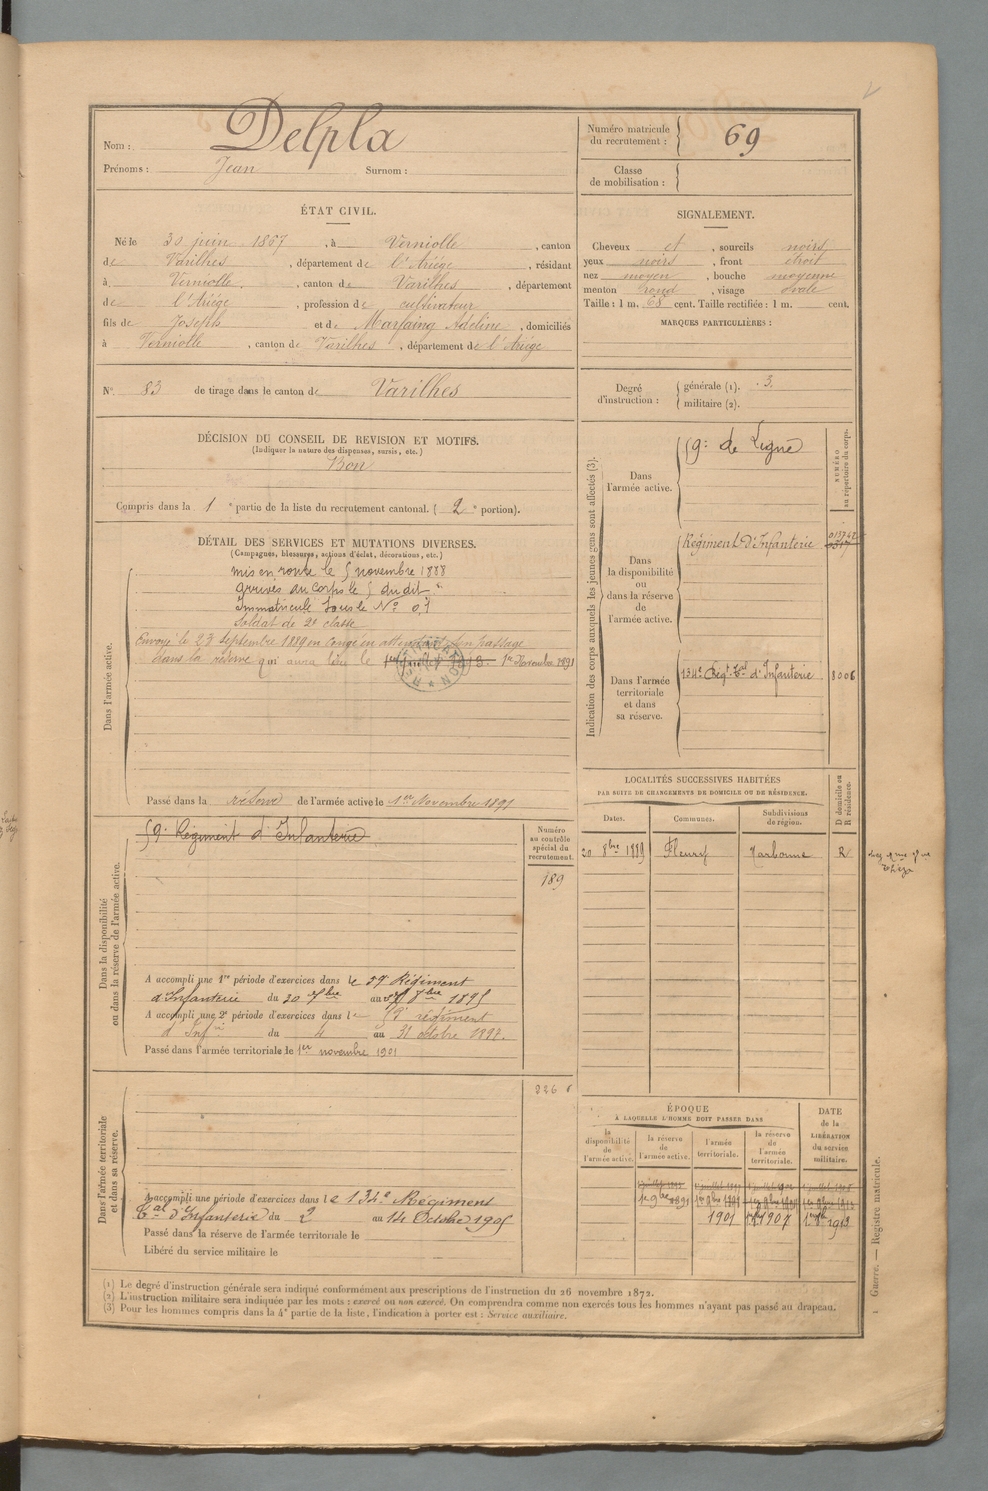 Nom : Delpla
Prénoms : Jean Surnom :
Numéro matricule du recrutement : 69
Classe de mobilisation :
ÉTAT CIVIL.
Né le 30 juin 1867, à Verniolle, canton
de Varilhes, département de l'Ariége, résidant
à Verniolle, canton de Varilhes, département
de l'Ariége, profession de cultivateur
fils de Joseph et de Marfaing Adeline, domiciliés
à Verniolle, canton de Varilhes, département de l'Ariége
N° 83 de tirage dans le canton de Varilhes
SIGNALEMENT.
Cheveux et, sourcils noirs
yeux noirs, front étroit
nez moyen, bouche moyenne
menton rond, visage ovale
Taille : 1 m. 63 cent. Taille rectifiée : 1 m. cent.
MARQUES PARTICULIÈRES :
Degré d'instruction : générale (1). 3.
militaire (2).
DÉCISION DU CONSEIL DE REVISION ET MOTIFS.
(Indiquer la nature des dispenses, sursis, etc.)
Bon
Compris dans la 1e partie de la liste du recrutement cantonal. (2e portion).
DÉTAIL DES SERVICES ET MUTATIONS DIVERSES.
(Campagnes, blessures, actions d'éclat, décorations, etc.)
Dans l'armée active.
mis en route le 5 novembre 1888
arrivés au corps le 5 du dit
Immatriculé sous le N°
Soldat de 2e classe
Envoyé le 23 septembre 1889 en congé en attendant son passage
dans la réserve qui aura lieu le 1er juillet 1er Novembre 1891
Passé dans la réserve de l'armée active le 1er Novembre 1891
Indication des corps auxquels les jeunes gens sont affectés (3).
NUMÉRO au répertoire du corps.
Dans l'armée active.
59e de Ligne
Dans la disponibilité ou dans la réserve de l'armée active.
Régiment d'Infanterie
Dans l'armée territoriale et dans sa réserve.
134e Régt Tal d'Infanterie 8006
LOCALITÉS SUCCESSIVES HABITÉES
PAR SUITE DE CHANGEMENTS DE DOMICILE OU DE RÉSIDENCE.
Dates. Communes. Subdivisions de région. D domicile ou R résidence.
20 8bre 1889 Fleury Narbonne R
Dans la disponibilité ou dans la réserve de l'armée active.
59e Régiment d'Infanterie
Numéro au contrôle spécial du recrutement.
189
A accompli une 1re période d'exercices dans le 59e Régiment
d'Infanterie du 30 7bre au 8bre 1895
A accompli une 2e période d'exercices dans le régiment
d'Infie du 4 au 31 octbre 1897.
Passé dans l'armée territoriale le 1er novembre 1901
226
Dans l'armée territoriale et dans sa réserve.
A accompli une période d'exercices dans le 134e Régiment
Tal d'Infanterie du 2 au 14 Octobre 1905
Passé dans la réserve de l'armée territoriale le
Libéré du service militaire le
ÉPOQUE
À LAQUELLE L'HOMME DOIT PASSER DANS
la disponibilité de l'armée active. la réserve de l'armée active. l'armée territoriale. la réserve de l'armée territoriale. DATE de la LIBÉRATION du service militaire.
1er 9bre 1891
1901 1907 1913
(1) Le degré d'instruction générale sera indiqué conformément aux prescriptions de l'instruction du 26 novembre 1872.
(2) L'instruction militaire sera indiquée par les mots : exercé ou non exercé. On comprendra comme non exercés tous les hommes n'ayant pas passé au drapeau.
(3) Pour les hommes compris dans la 4e partie de la liste, l'indication à porter est : Service auxiliaire.
Guerre. — Registre matricule.